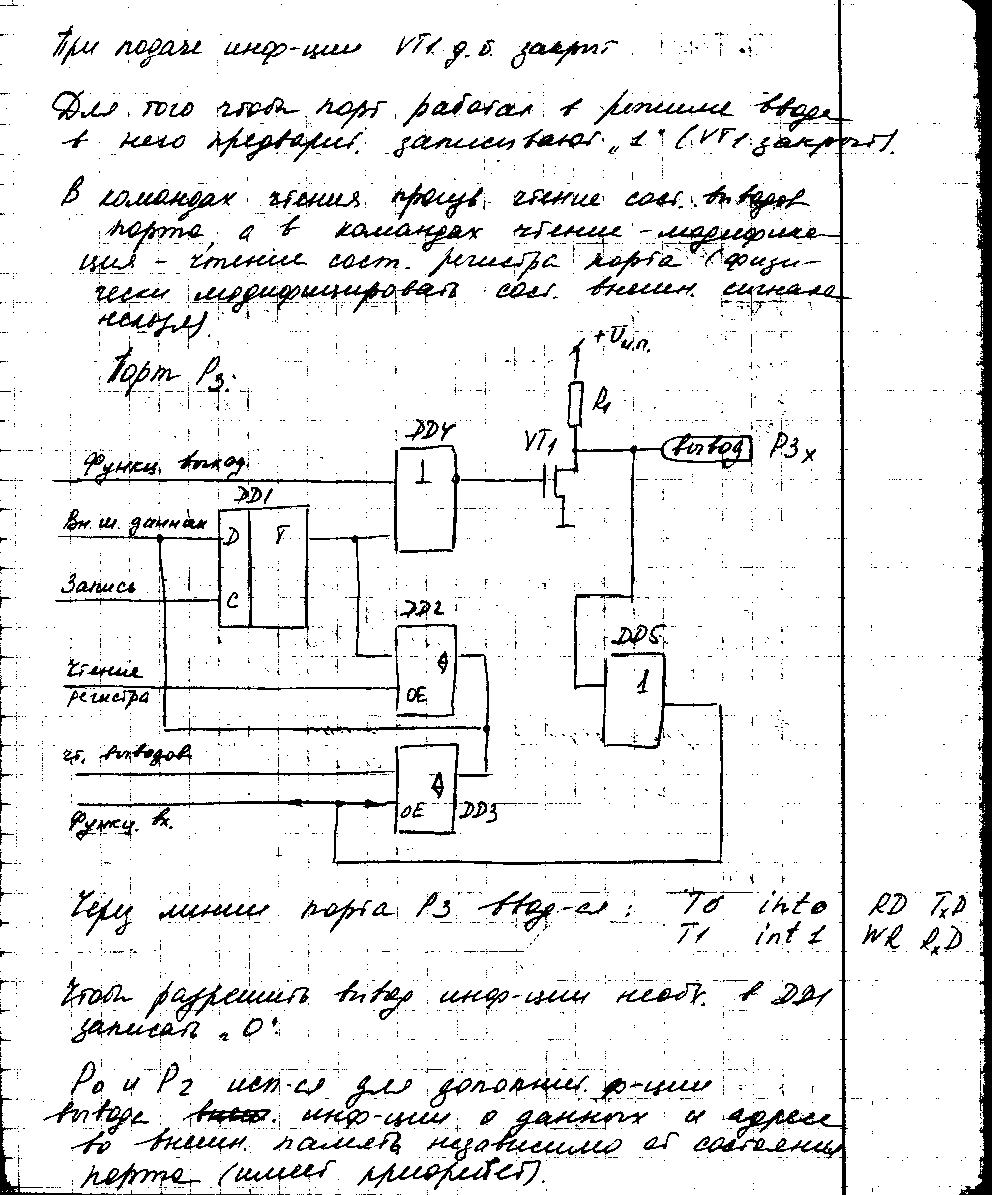 При подаче инф-ции VT1 д.б. закрыт
Для того чтобы порт работал в режиме ввода
в него предварит. записывают „1“ (VT1 закрыт).
В командах чтения произв. чтение сост. выводов
порта, а в командах чтение-модифика-
ция - чтение сост. регистра порта (физи-
чески модифицировать сост. внешн. сигнала
нельзя).
Порт P3:
+Uи.п.
R1
DD4
VT1
вывод P3x
Функц. выход
1
DD1
Вн. ш. данных
D T
Запись
C
DD2
DD5
Чтение
регистра
OE
1
чт. выводов
OE DD3
Функц. вх.
Через линии порта P3 ввод-ся: T0 int0 RD TxD
T1 int1 WR RxD
Чтобы разрешить вывод инф-ции необх. в DD1
записать „0“.
P0 и P2 исп-ся для дополнит. ф-ции
вывода инф-ции о данных и адресе
во внешн. память независимо от состояния
порта (имеет приоритет).